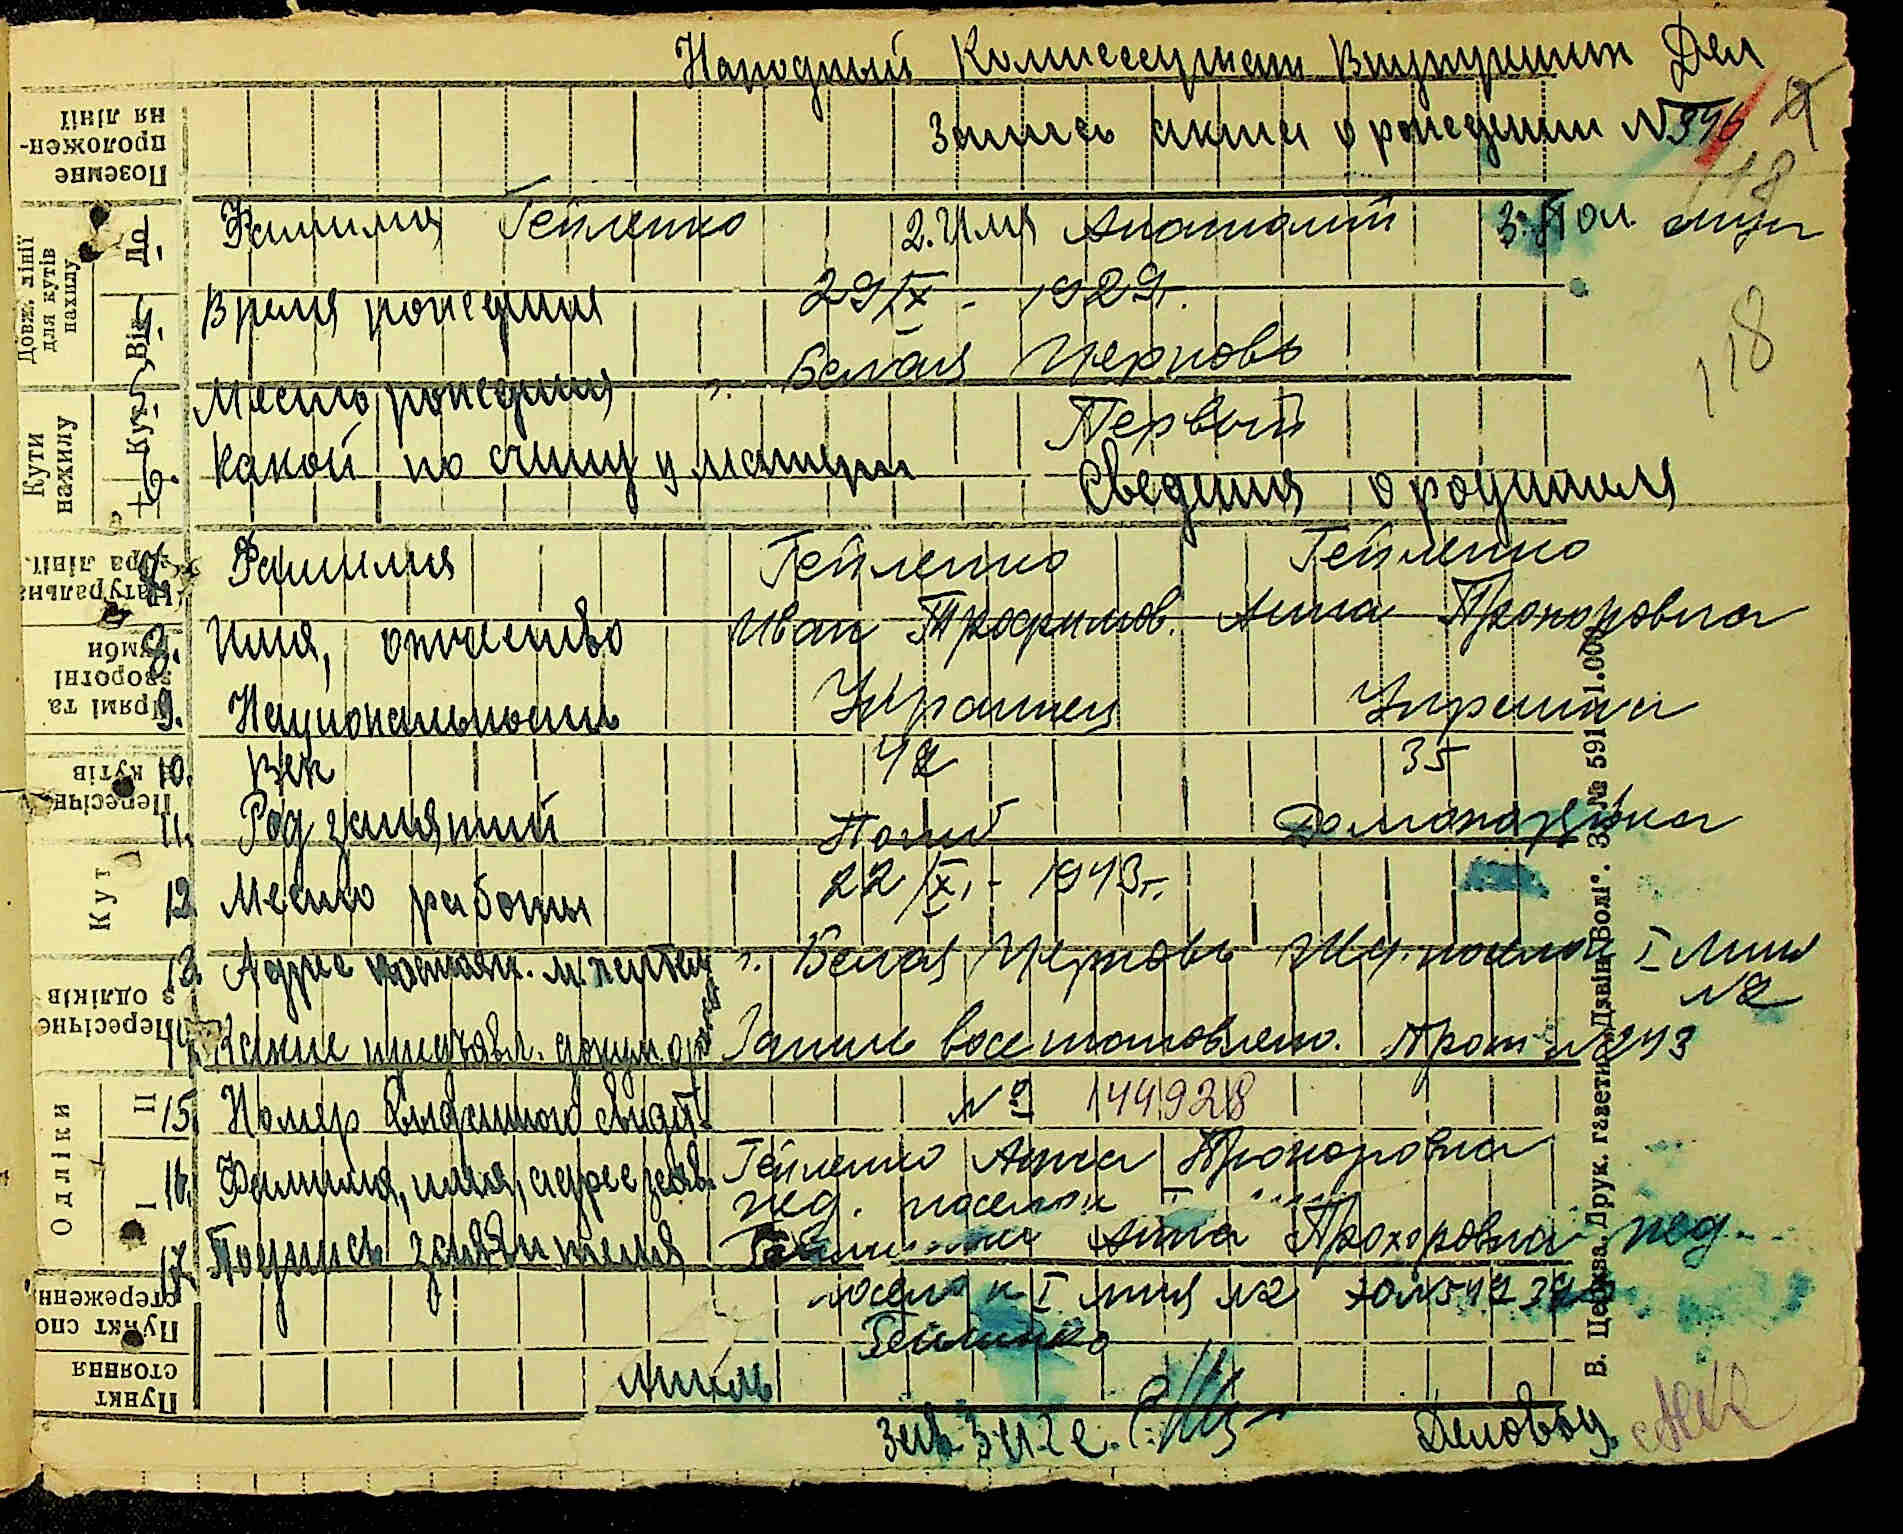 Народный Комиссариат Внутрених Дел
Запись акта о рождении №
118
Фамилия Гейленко 2. Имя Анатолий 3. Пол. муж
Время рождения 29/IX - 1929г.
118
Место рождения г. Белая Церковь
6. Какой по счету у матери Первый
Сведения о родителя
Фамилия Гейленко Гейленко
8. Имя, отчество Иван Трофимов. Анна Прохоровна
9. Национальность Украинец Украинка
10. Век 42 35
11. Род занятий Погиб Домохозяйка
12. Место работы 22/IX - 1943г.
13. Адрес постоян. м. жител г. Белая Церковь Жд. поселок I Линия
№2
14. Какие предъявл. докум. Запись восстановлено. Прот №243
15. Номер выданного свидт. № 144928
16. Фамилия, имя, адрес заяв. Гейленко Анна Прохоровна
жед. поселок I
17. Подпись заявителя Анна Прохоровна жед.
поселок I линия №2
Гейленко
Зав. Загс. Деловод.
Поземне проложення лінії
Довж. лінії для кутів нахилу
До
Від
Кути нахилу
Кут
+
Натуральна
Прямі та зворотні румби
Пересічн кутів
Кут
Пересічне з одліків
Одліки
II
I
Пункт спостереженн
Пункт стояння
В. Церква. Друк. газети